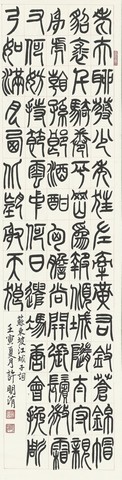 老夫聊發少年狂左牽黃右擎蒼錦帽
貂裘千騎卷平岡為報傾城隨太守親
射虎看孫郎酒酣胸膽尚開張鬢微霜
又何妨持節雲中何日遣馮唐會挽雕
弓如滿月西北望射天狼
蘇東坡江城子詞
壬寅夏月許明清